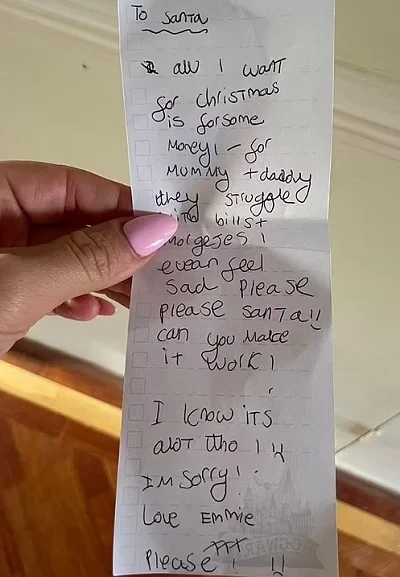 To Santa
all I want
for christmas
is forsome
money! - for
mummy + daddy
they struggle
with bills +
morgeses I
evean feel
sad please
please santa!!
can you make
it work!
I know its
alot tho!
I'm sorry!
Love Emmie
Please !!!